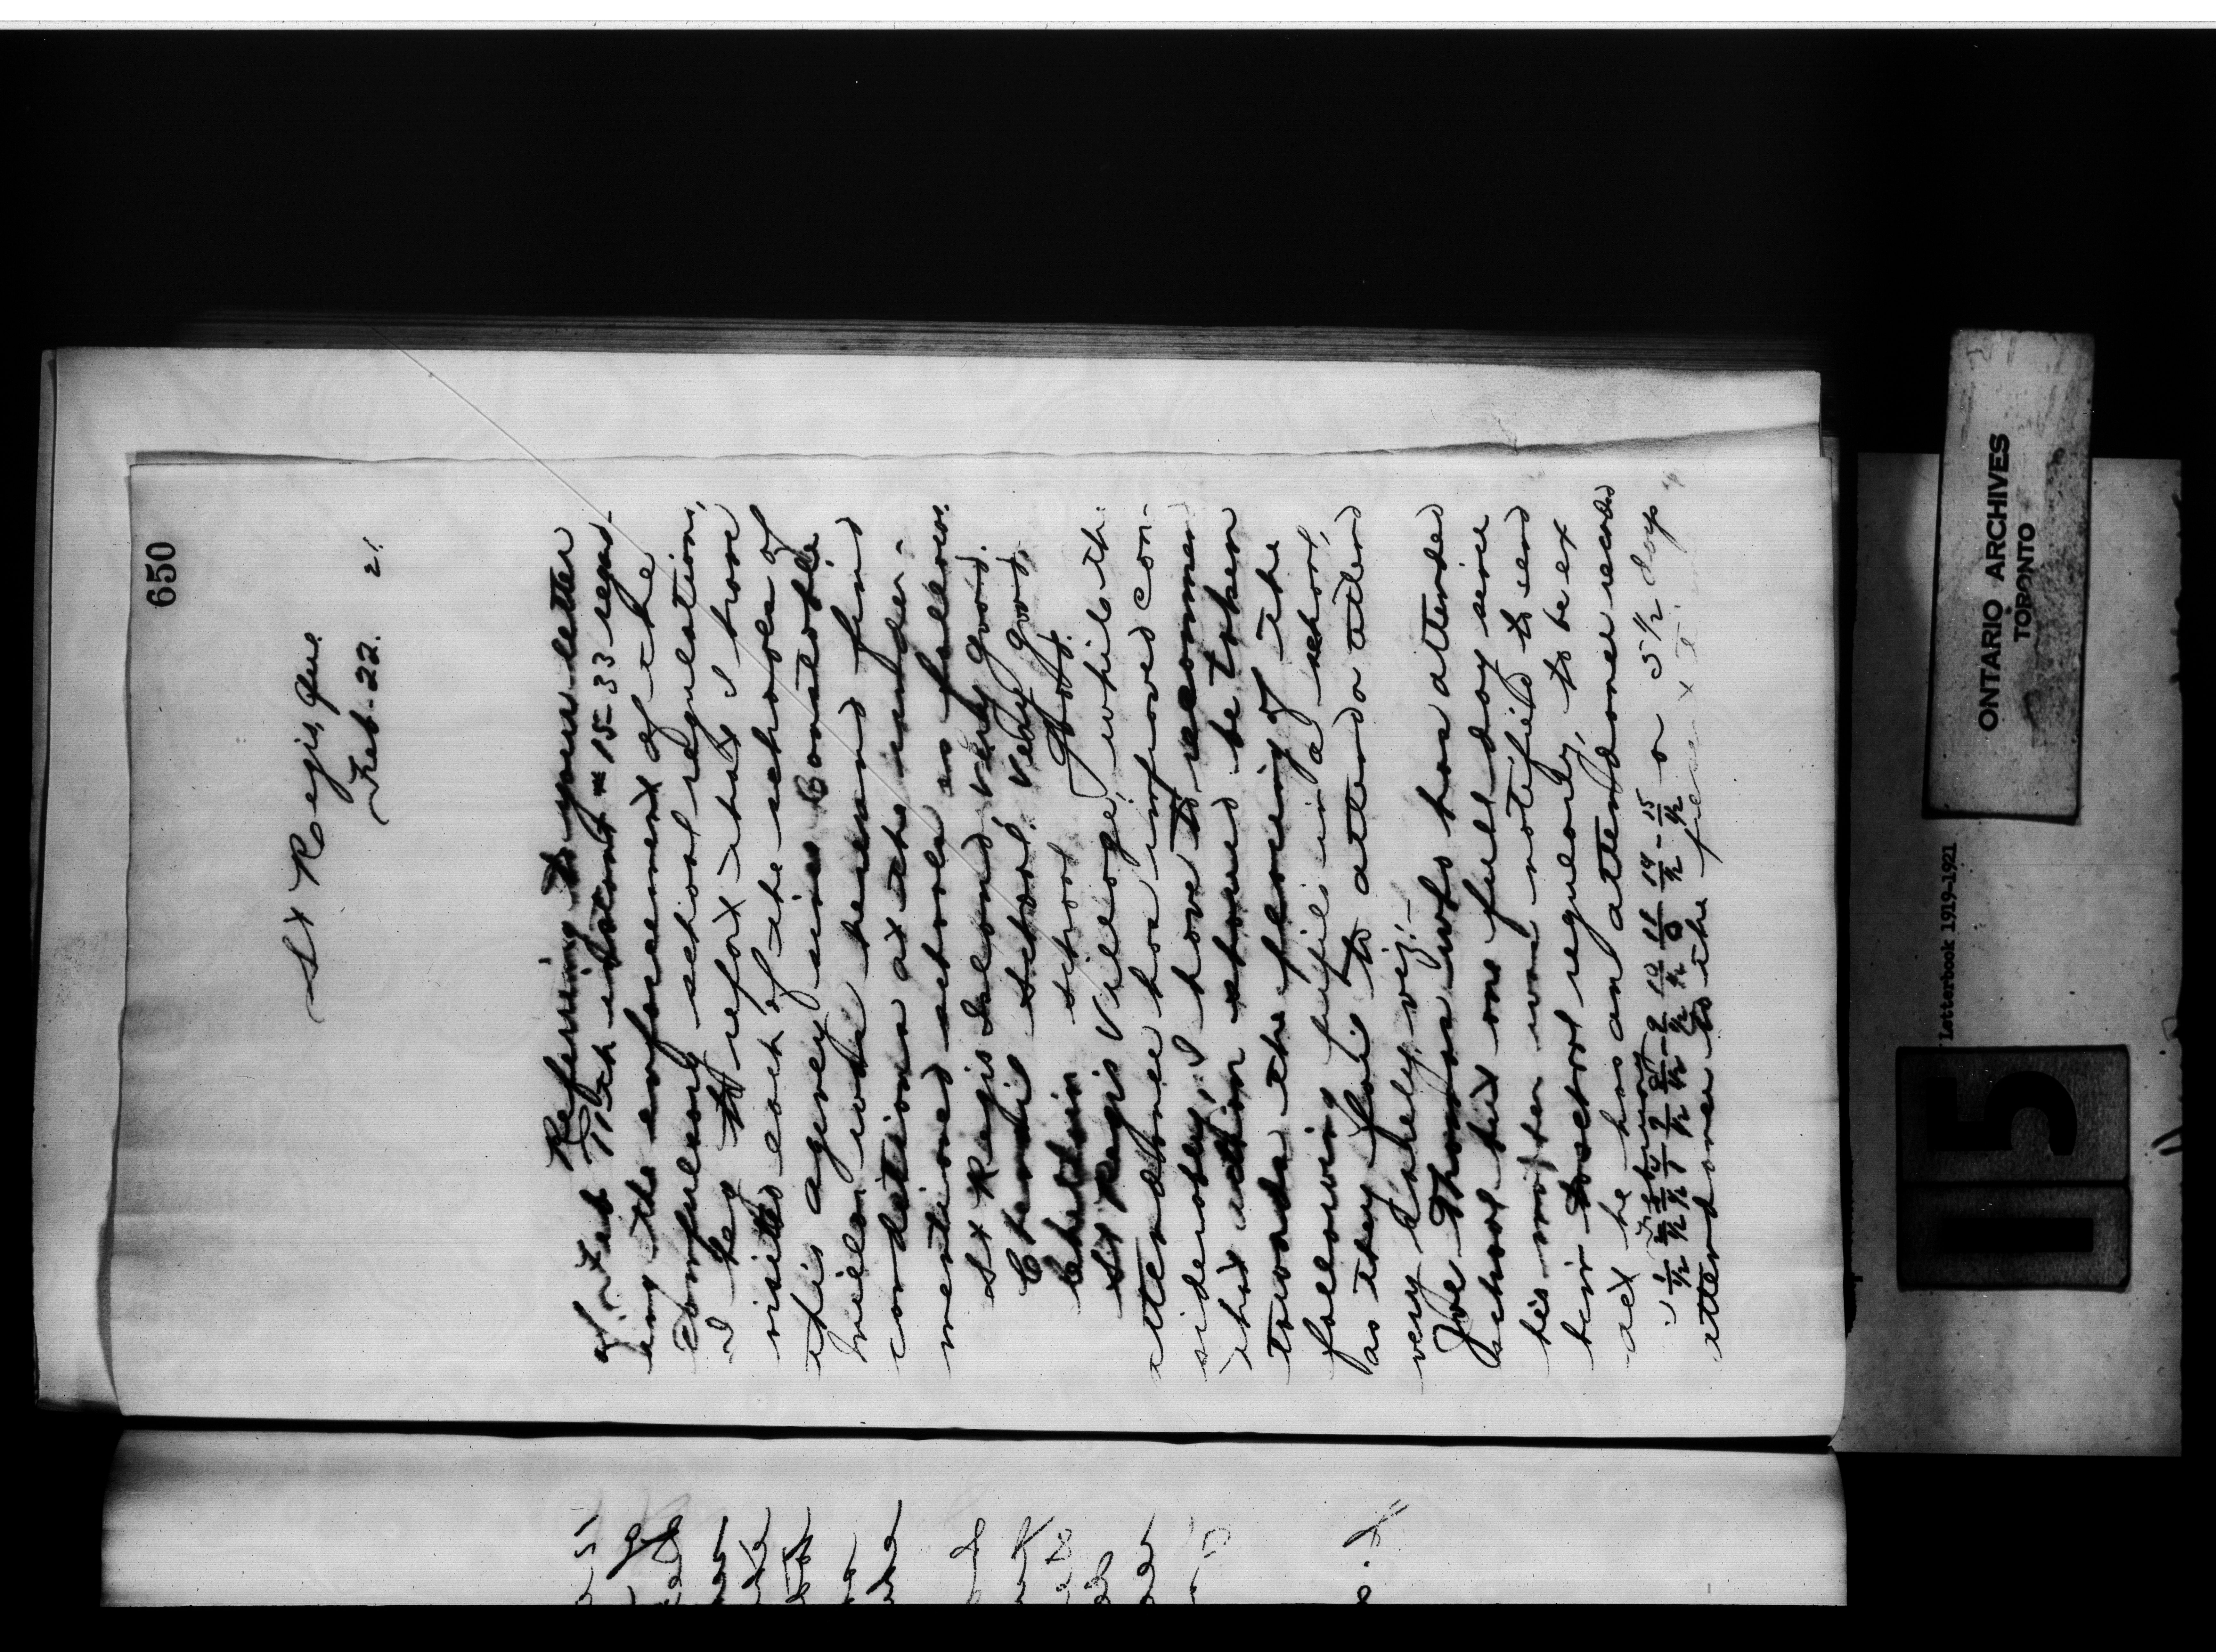 650
St Regis, Que.
Feb. 22. 21
Referring to your letter
of Feb 17th instant # 15-33 regard-
ing the enforcement of the
compulsory school regulations,
I beg to report that I have
visited each of the schools of
this agency since Constable
Miller was here and find
conditions at the under-
mentioned schools as follows.
St Regis Island, very good.
Chenail School, very good.
school Good.
St Regis Village, while the
attendance has improved con-
siderably, I have to recommend
that action should be taken
towards the placing of the
following pupils in a school,
as they fail to attend or attend
very rarely, viz:-
Joe Thomas who has attended
school but one full day since
his mother was notified to send
him to school regularly, to be ex
act he has an attendance record
February
1/½ 7/½ 8/½ 9/½ 10/½ 14/½ 15/½ or 5½ days
attendance to the
ONTARIO ARCHIVES
TORONTO
Letterbook 1919-1921
115